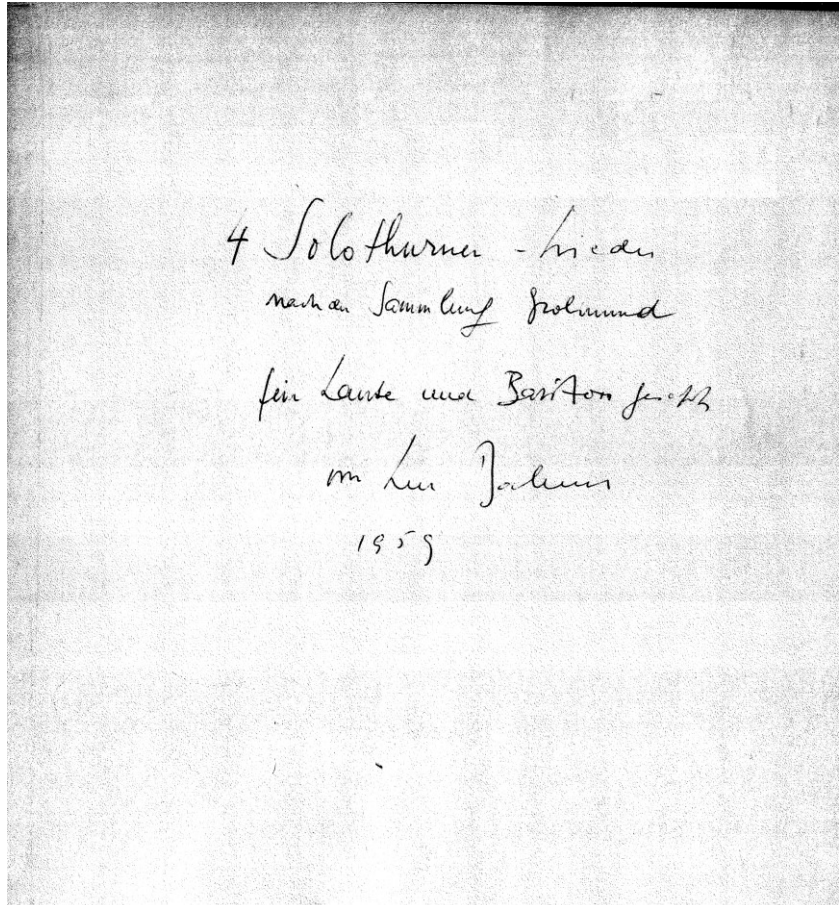 4 Solothurner-Lieder
nach der Sammlung Grolimund
für Laute und Bariton gesetzt
von
1959